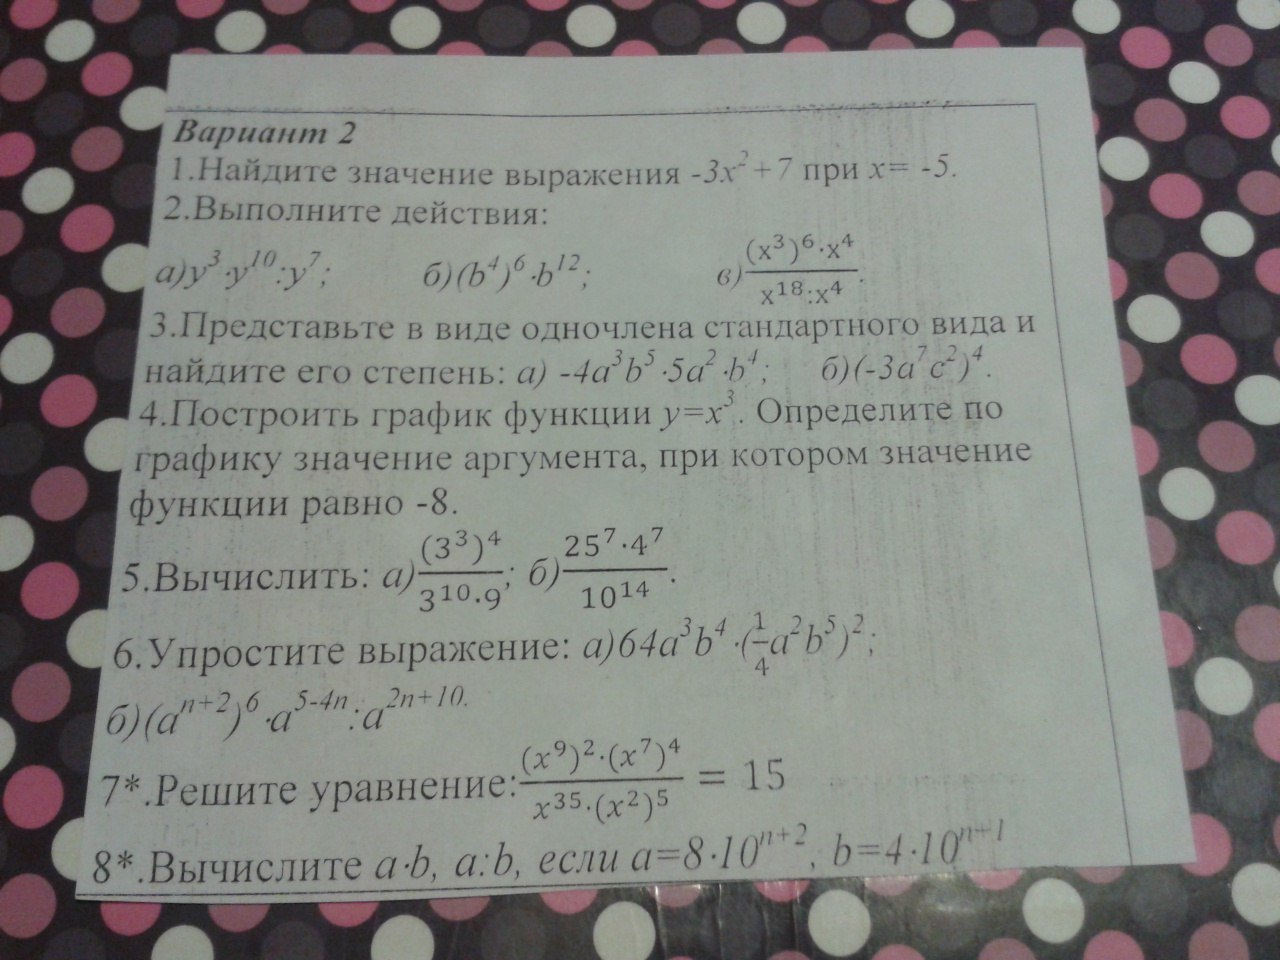 Вариант 2
1.Найдите значение выражения -3x²+7 при x= -5.
2.Выполните действия:
а)y³·y¹⁰:y⁷; б)(b⁴)⁶·b¹²; в)\frac{(x³)⁶·x⁴}{x¹⁸:x⁴}.
3.Представьте в виде одночлена стандартного вида и
найдите его степень: а) -4a³b⁵·5a²·b⁴; б)(-3a⁷c²)⁴.
4.Построить график функции y=x³. Определите по
графику значение аргумента, при котором значение
функции равно -8.
5.Вычислить: а)\frac{(3³)⁴}{3¹⁰·9}; б)\frac{25⁷·4⁷}{10¹⁴}.
6.Упростите выражение: а)64a³b⁴·(\frac{1}{4}a²b⁵)²;
б)(aⁿ⁺²)⁶·a⁵⁻⁴ⁿ:a²ⁿ⁺¹⁰.
7*.Решите уравнение:\frac{(x⁹)²·(x⁷)⁴}{x³⁵·(x²)⁵} = 15
8*.Вычислите a·b, a:b, если a=8·10ⁿ⁺², b=4·10ⁿ⁺¹